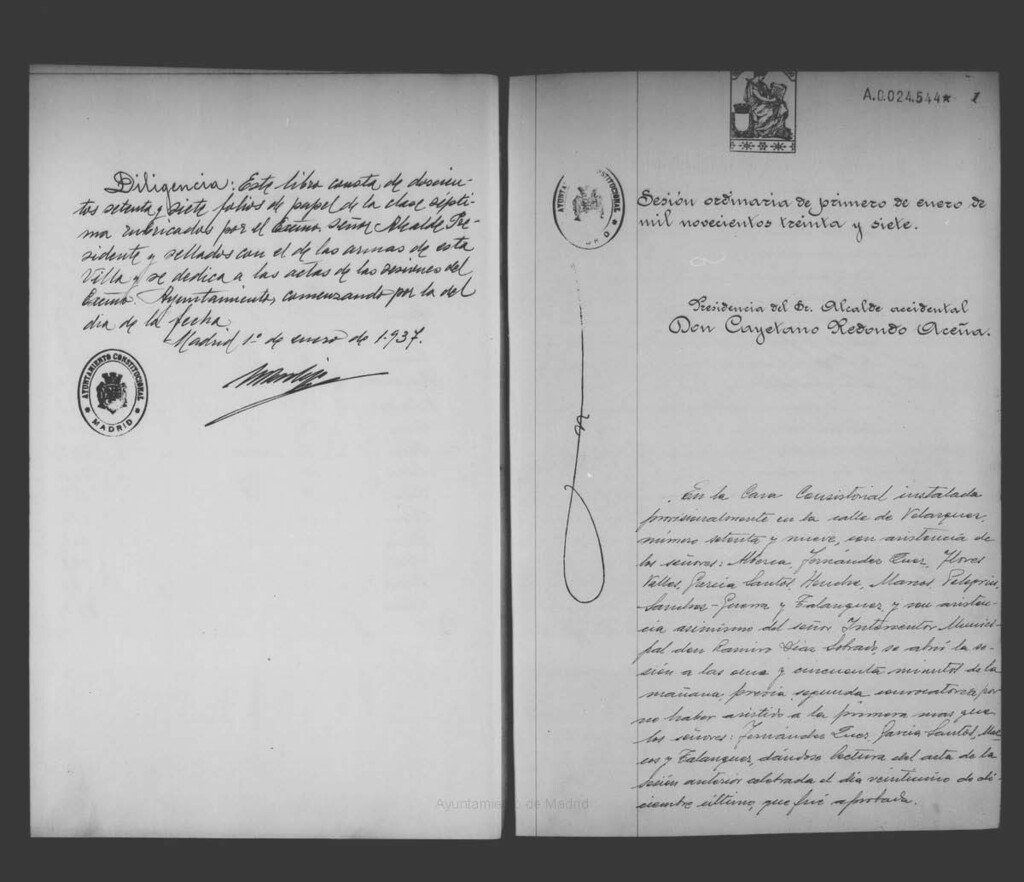 Diligencia: Este libro consta de doscien-
tos setenta y siete folios de papel de la clase sépti-
ma rubricados por el Excmo. señor Alcalde Pre-
sidente y sellados con el de las armas de esta
Villa y se dedica a las actas de las sesiones del
Excmo. Ayuntamiento, comenzando por la del
dia de la fecha.
Madrid 1º de enero de 1.937.
AYUNTAMIENTO CONSTITUCIONAL
MADRID
A.0.024.544* 1
Sesión ordinaria de primero de enero de
mil novecientos treinta y siete.
Presidencia del Sr. Alcalde accidental
Don Cayetano Redondo Aceña.
En la Casa Consistorial instalada
provisionalmente en la calle de Velazquez,
número setenta y nueve, con asistencia de
los señores: Fernández Quer, Flores
Valles, García Santos, Henche, Marcos,
Sanchez-Guerra y Talanquer, y con asisten-
cia asimismo del señor Interventor Munici-
pal don Ramiro Díaz Sobrado, se abrió la se-
sión a las once y cincuenta minutos de la
mañana, previa segunda convocatoria, por
no haber asistido a la primera mas que
los señores: Fernández Quer, García Santos, Mar-
cos y Talanquer, dándose lectura del acta de la
sesión anterior celebrada el día veintiuno de di-
ciembre último, que fué aprobada.
Ayuntamiento de Madrid